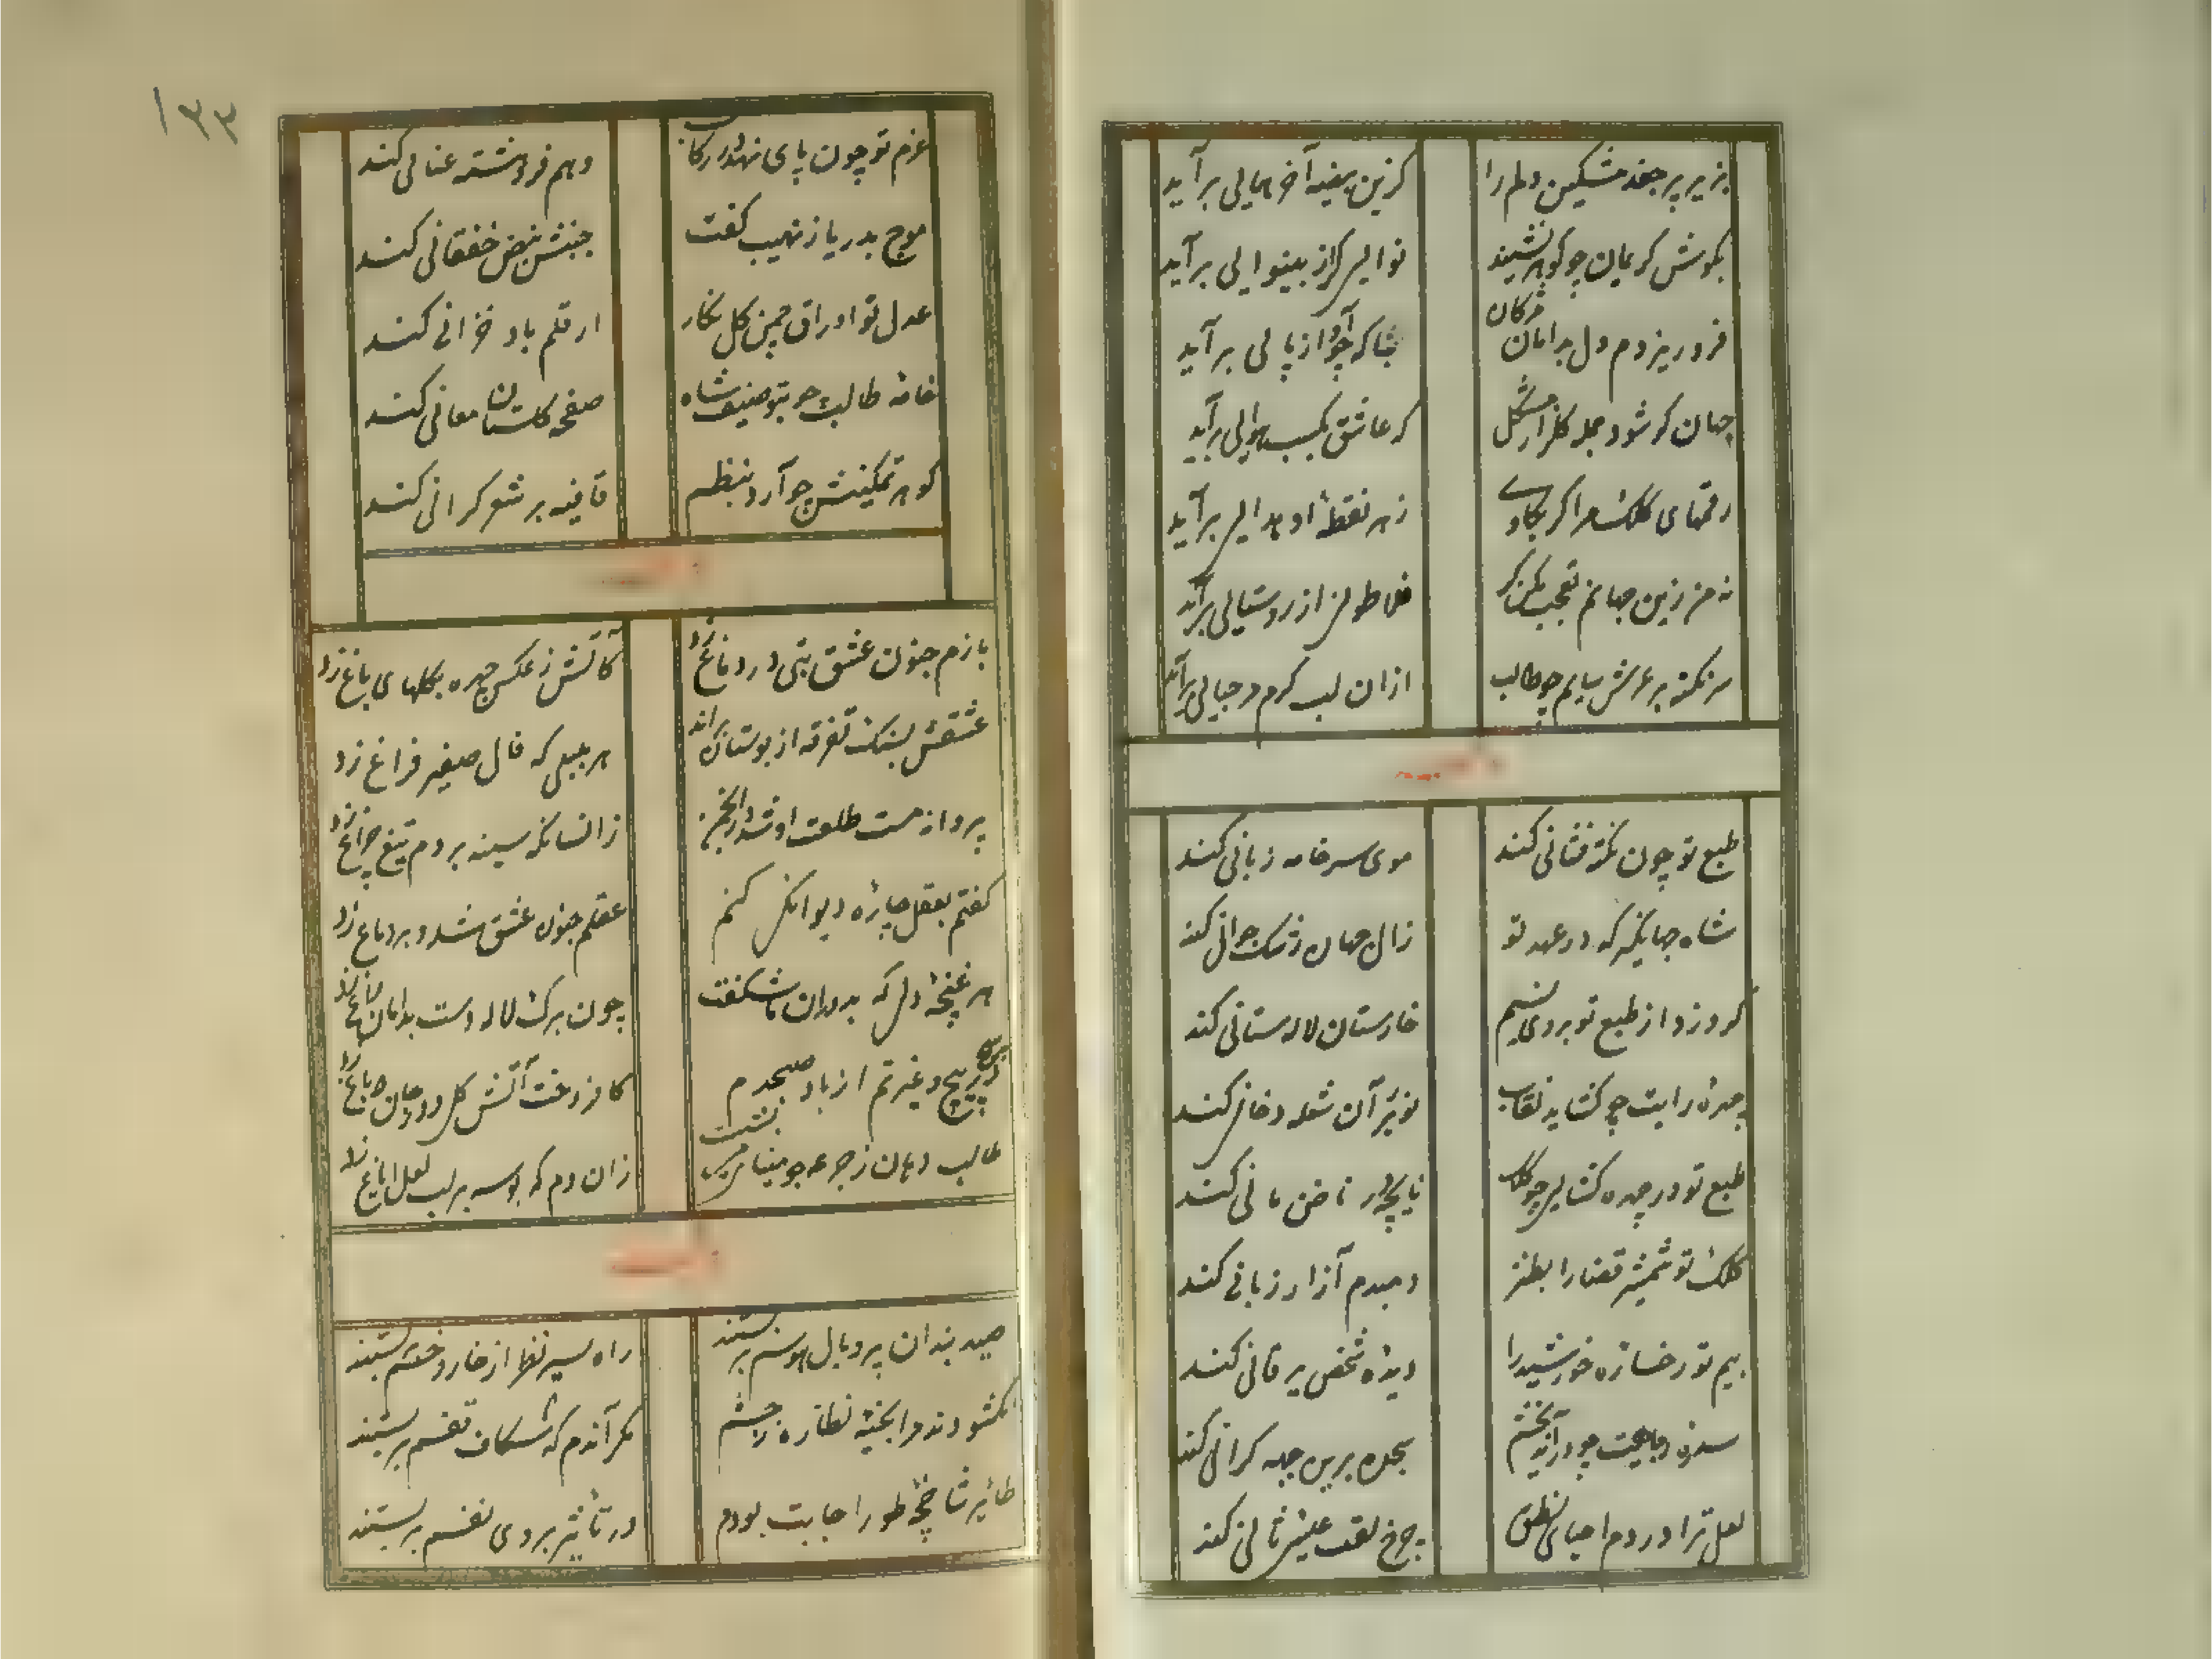 بزیر پر جغد مشکین دلم را
کزین بیضه آخر همایی برآید
بکوش کریمان چو کوهر نشیند
نوایی کز بینوایی برآید
فرو ریزدم دل بدامان مژکان
چو آواز پایی برآید
جهان کر شود جمله کلزار مشکل
که عاشق بکسب هوایی برآید
رقمهای کلک مرا کر بکاوی
ز هر نقطهٔ او همایی برآید
نه من زین جهانم تعجب مکن کر
فلاطونی از روستایی برآید
سر نکته بر عرش سایم چو طالب
ازان لب کرم مرحبایی برآید
طبع تو چون نکته فشانی کند
موی سر خامه زبانی کند
شاه جهانکیر که در عهد تو
زال جهان رشک جوانی کند
کر وزد از طبع تو بر وی نسیم
خارستان لاله ستانی کند
چهرهٔ رایت چو کشاید نقاب
نیر آن شعله دخانی کند
طبع تو در چهره کشایی چو کلک
ناخن مانی کند
کلک تو شمشیر قضا را بطنز
دمبدم آزار زبانی کند
بیم تو رخسارهٔ خورشید را
دیدهٔ شخص یرقانی کند
سدهٔ جاهت چو درآید بچشم
سجده برین جبهه کرانی کند
لعل ترا در دم احیای نطق
چرخ لقب عیسی ثانی کند
۱۳۳
عزم تو چون پای نهد در رکاب
وهم فروهشته عنانی کند
موج بدریا ز نهیب کفت
جنبش نبض خفقانی کند
عدل تو اوراق چمن کل نکار
از قلم باد خزانی کند
خامه طالب چو بتوصیف شاه
صفحه کلستان معانی کند
کوهر تمکینش چو آرد بنظم
قافیه بر شعر کرانی کند
بازم جنون عشق بتی در دماغ زد
کاتش ز عکس چهره بکلهای باغ زد
عشقش بسنک تفرقه از بوستان براند
هر بلبلی که فال صفیر فراغ زد
پروانه مست طلعت او شد در انجمن
زانسانکه سینه بر دم تیغ چراغ زد
کفتم بعقل چارهٔ دیوانکی کنم
عقلم جنون عشق شد و بر دماغ زد
هر غنچهٔ دلی که بدوران ما شکفت
چون برک لاله دست بدامان داغ زد
پیچ و غیرتم از باد صبحدم
کافروخت آتش کل و
طالب دهان ز جرعه چو مینا نبست
زان دم که بوسه بر لب لعل ایاغ زد
صید بندان پر و بال هوسم بربستند
راه سیر نظر از خار و خسم بستند
نکشودند مرا بخیهٔ نظاره ز چشم
مکر آندم که شکاف قفسم بربستند
طایر شاخچهٔ طور اجابت بودم
در تأثیر بروی نفسم بربستند